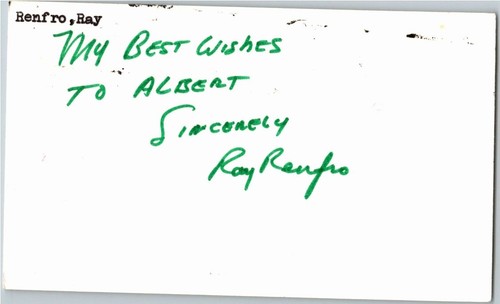 Renfro,Ray
My Best Wishes
To Albert
Sincerely
Ray Renfro